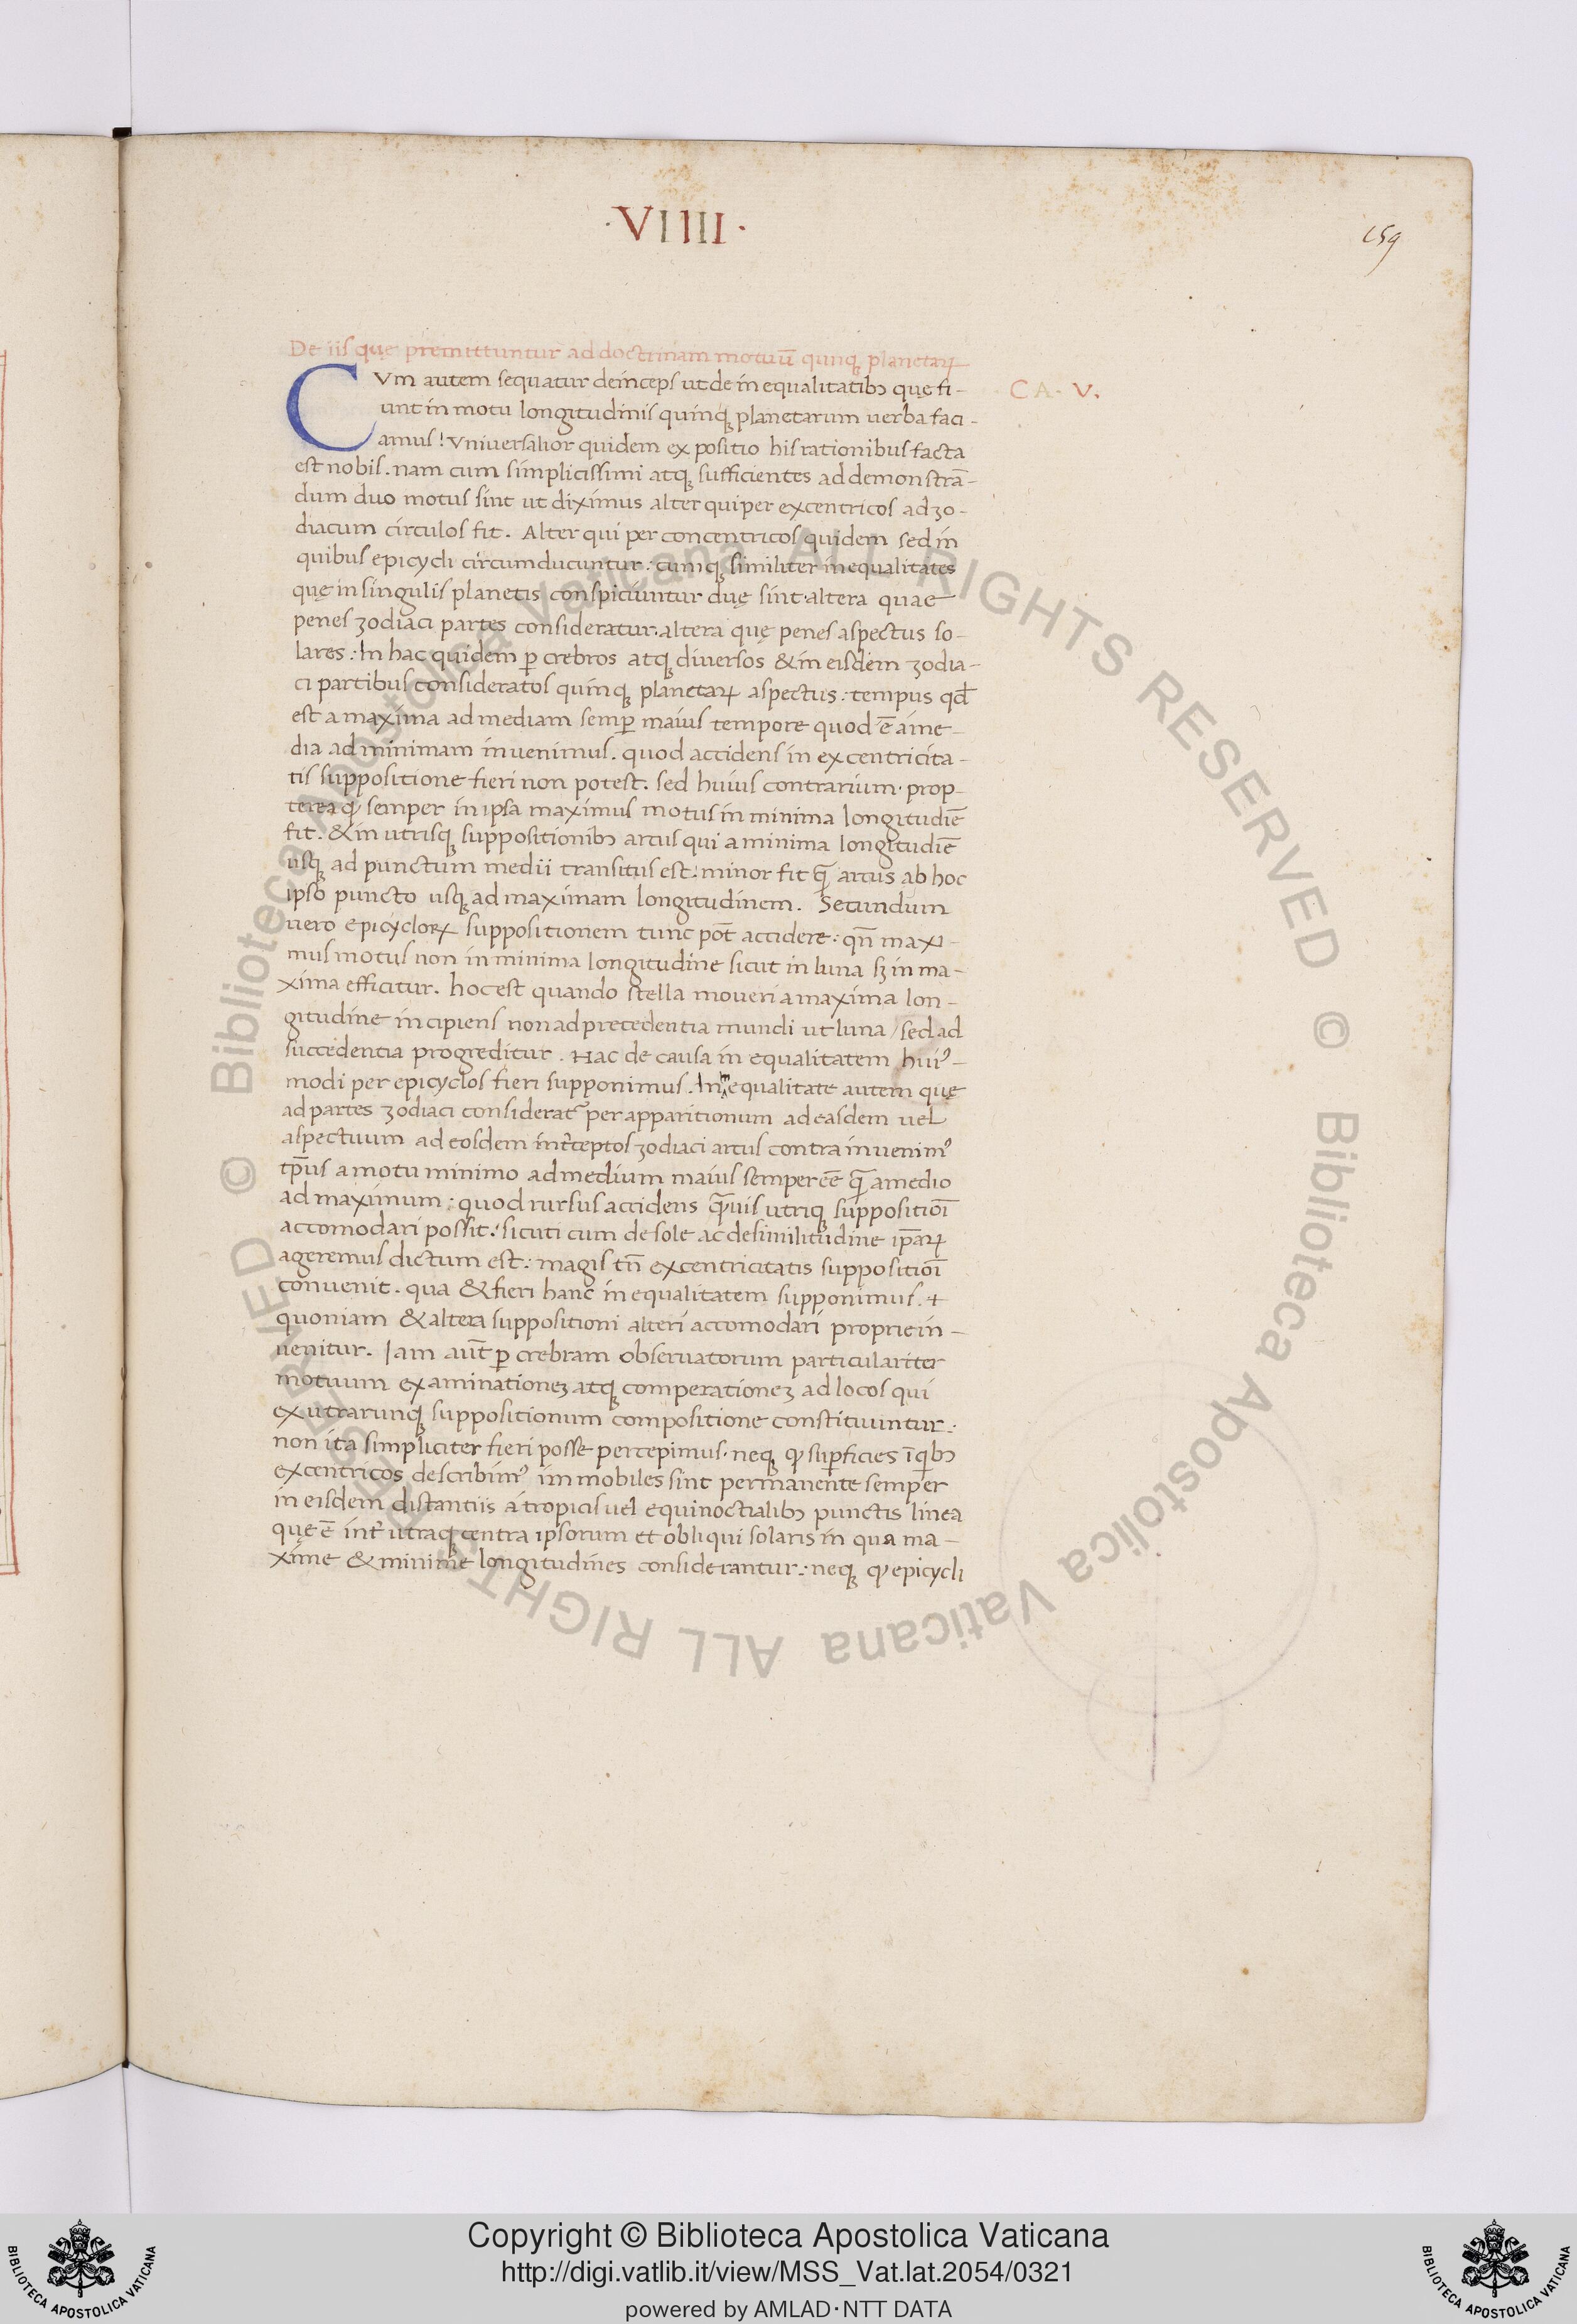 ·VIIII·
159
De iis quę premittuntur ad doctrinam motuū quinqꝫ planetaꝝ
CVm autem sequatur deinceps ut de inequalitatibꝰ quę fi-
CA. V.
unt in motu longitudinis quinqꝫ planetarum uerba faci-
amus! Vniuersalior quidem expositio his rationibus facta
est nobis. nam cum simplicissimi atqꝫ sufficientes ad demonstrā-
dum duo motus sint ut diximus alter qui per excentricos ad zo-
diacum circulos fit. Alter qui per concentricos quidem sed in
quibus epicycli circumducuntur: cumqꝫ similiter inequalitates
quę in singulis planetis conspiciuntur duę sint. altera quae
penes zodiaci partes consideratur. altera quę penes aspectus so-
lares: In hac quidem ꝑ crebros atqꝫ diuersos & in eisdem zodia-
ci partibus consideratos quinqꝫ planetaꝝ aspectus: tempus qđ
est a maxima ad mediam semꝑ maius tempore quod ē a me-
dia ad minimam inuenimus. quod accidens in excentricita-
tis suppositione fieri non potest. sed huius contrarium. prop-
terea ꝙ semper in ipsa maximus motus in minima longitudīe
fit. & in utrisqꝫ suppositionibꝰ arcus qui a minima longitudīe
usqꝫ ad punctum medii transitus est: minor fit q̄ arcus ab hoc
ipso puncto usqꝫ ad maximam longitudinem. Secundum
uero epicycloꝝ suppositionem tunc pōt accidere: qn̄ maxi-
mus motus non in minima longitudine sicut in luna sꝫ in ma-
xima efficitur. hoc est quando stella moueri a maxima lon-
gitudine incipiens non ad precedentia mundi ut luna / sed ad
succedentia progreditur. Hac de causa inequalitatem huiꝰ-
modi per epicyclos fieri supponimus. In equalitate autem quę
ad partes zodiaci consideratᷣ per apparitionum ad easdem uel
aspectuum ad eosdem int̄ceptos zodiaci arcus contra inuenimꝰ
tp̄us a motu minimo ad medium maius semper eē q̄ a medio
ad maximum: quod rursus accidens q̄uis utriqꝫ suppositioī
accomodari possit: sicuti cum de sole ac de similitudine ip̄aꝝ
ageremus dictum est: magis tn̄ excentricitatis suppositioī
conuenit. qua & fieri hanc inequalitatem supponimus. +
quoniam & altera suppositioni alteri accomodari proprie in-
uenitur. Iam aūt ꝑ crebram obseruatorum particulariter
motuum examinationeꝫ atqꝫ comperationeꝫ ad locos qui
ex utrarunqꝫ suppositionum compositione constituuntur:
non ita simpliciter fieri posse percepimus. neqꝫ ꝙ suꝑficies ī qibꝰ
excentricos describimꝰ immobiles sint permanente semper
in eisdem distantiis a tropicis uel equinoctialibꝰ punctis linea
quę ē int̄ utraqꝫ centra ipsorum et obliqui solaris in qua ma-
xime & minime longitudines considerantur: neqꝫ ꝙ epicycli
© Biblioteca Apostolica Vaticana ALL RIGHTS RESERVED © Biblioteca Apostolica Vaticana ALL RIGHTS RESERVED
Copyright © Biblioteca Apostolica Vaticana
http://digi.vatlib.it/view/MSS_Vat.lat.2054/0321
powered by AMLAD·NTT DATA
BIBLIOTECA APOSTOLICA VATICANA
BIBLIOTECA APOSTOLICA VATICANA